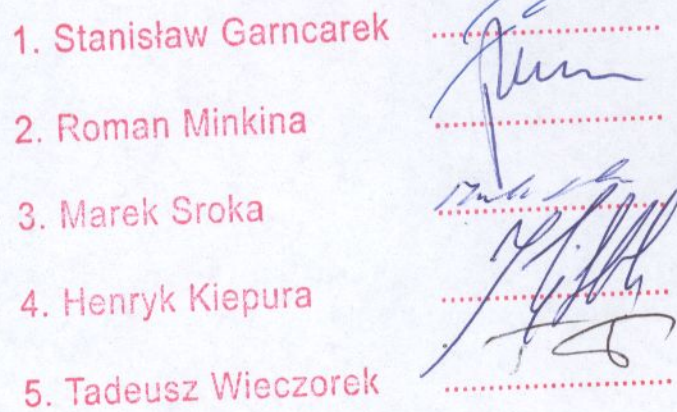 1. Stanisław Garncarek ........................
2. Roman Minkina ........................
3. Marek Sroka ........................
4. Henryk Kiepura ........................
5. Tadeusz Wieczorek ........................